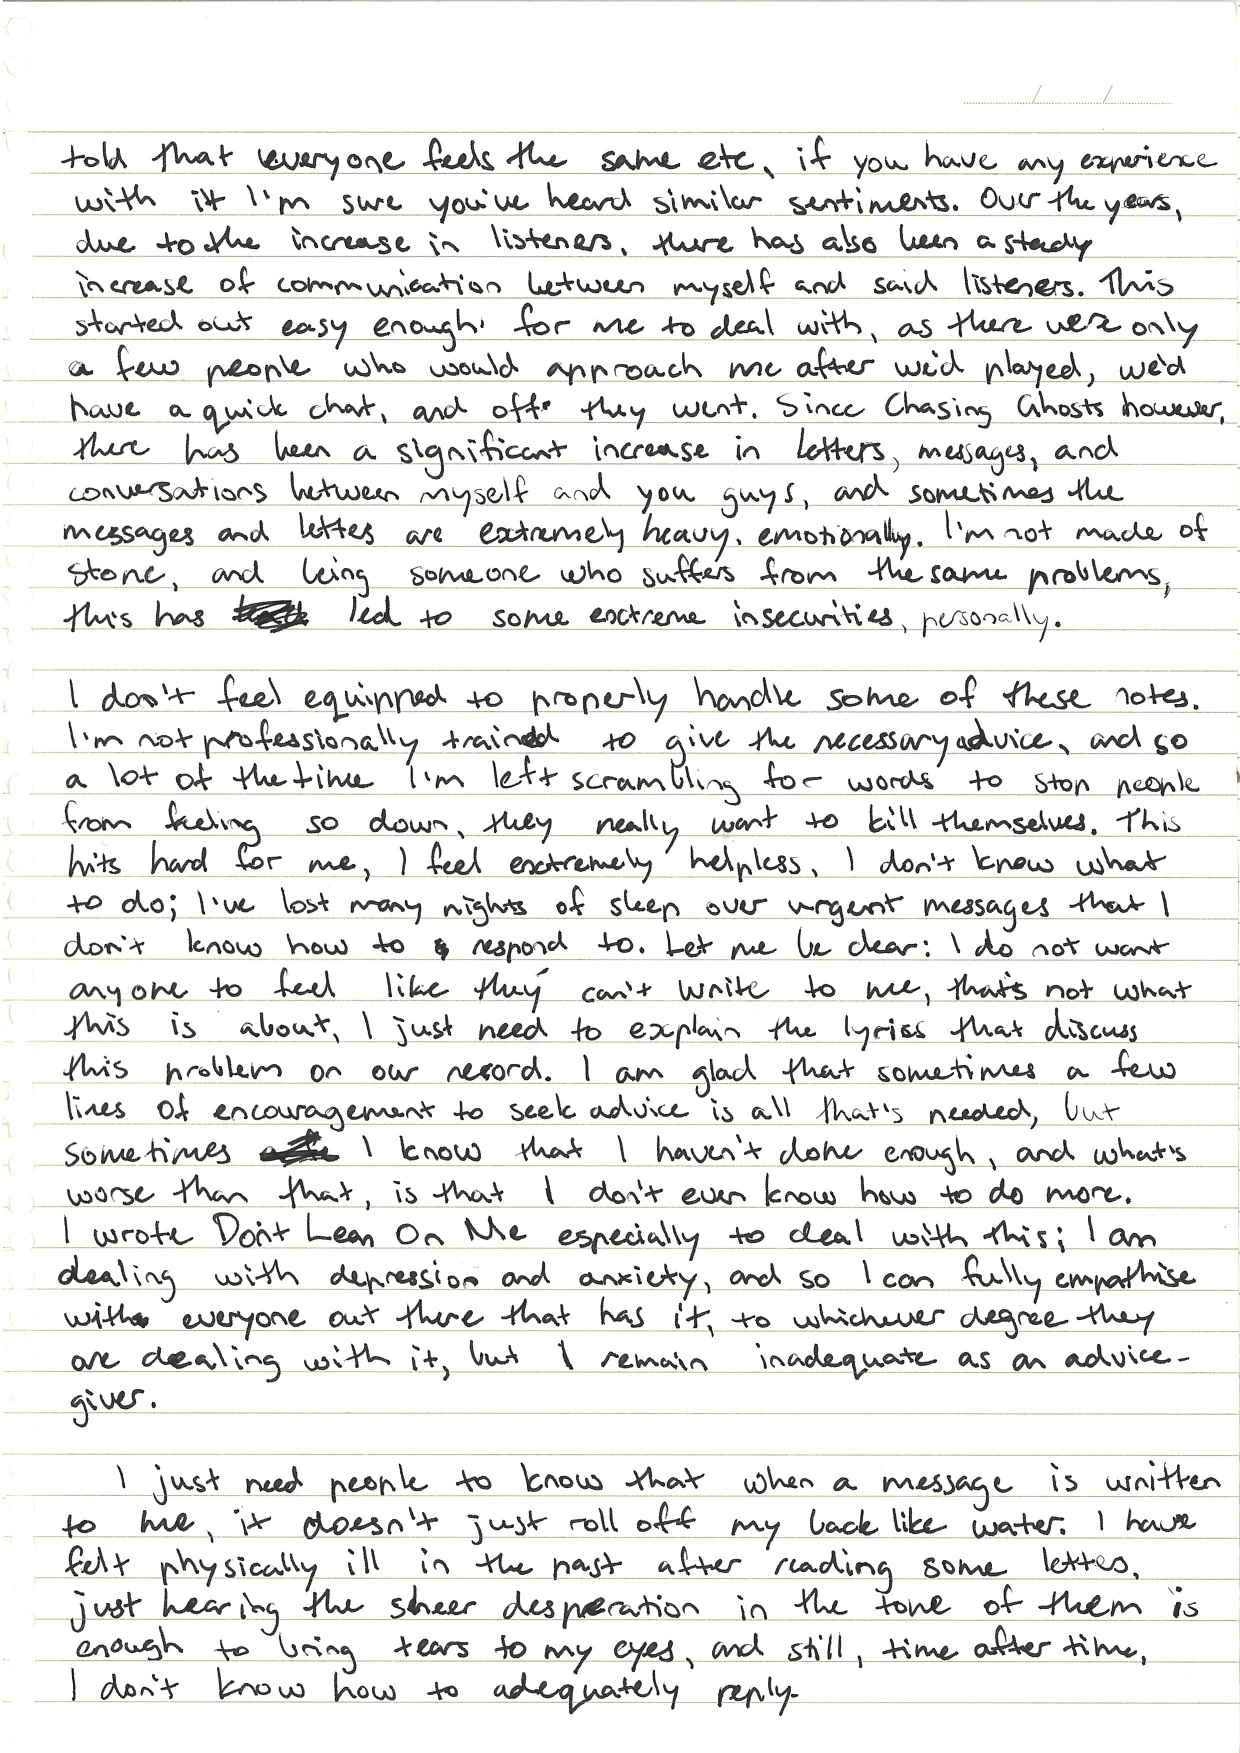 told that everyone feels the same etc, if you have any experience
with it I'm sure you've heard similar sentiments. Over the years,
due to the increase in listeners, there has also been a steady
increase of communication between myself and said listeners. This
started out easy enough for me to deal with, as there were only
a few people who would approach me after we'd played, we'd
have a quick chat, and off they went. Since Chasing Ghosts however,
there has been a significant increase in letters, messages, and
conversations between myself and you guys, and sometimes the
messages and lettes are extremely heavy, emotionally. I'm not made of
stone, and being someone who suffers from the same problems,
this has led to some extreme insecurities, personally.
I don't feel equipped to properly handle some of these notes.
I'm not professionally trained to give the necessary advice, and so
a lot of the time I'm left scrambling for words to stop people
from feeling so down, they really want to kill themselves. This
hits hard for me, I feel extremely helpless, I don't know what
to do; I've lost many nights of sleep over urgent messages that I
don't know how to respond to. Let me be clear: I do not want
anyone to feel like they can't write to me, that's not what
this is about, I just need to explain the lyrics that discuss
this problem on our record. I am glad that sometimes a few
lines of encouragement to seek advice is all that's needed, but
sometimes I know that I haven't done enough, and what's
worse than that, is that I don't even know how to do more.
I wrote Don't Lean On Me especially to deal with this; I am
dealing with depression and anxiety, and so I can fully empathise
with everyone out there that has it, to whichever degree they
are dealing with it, but I remain inadequate as an advice-
giver.
I just need people to know that when a message is written
to me, it doesn't just roll off my back like water. I have
felt physically ill in the past after reading some lettes,
just hearing the sheer desperation in the tone of them is
enough to bring tears to my eyes, and still, time after time,
I don't know how to adequately reply.